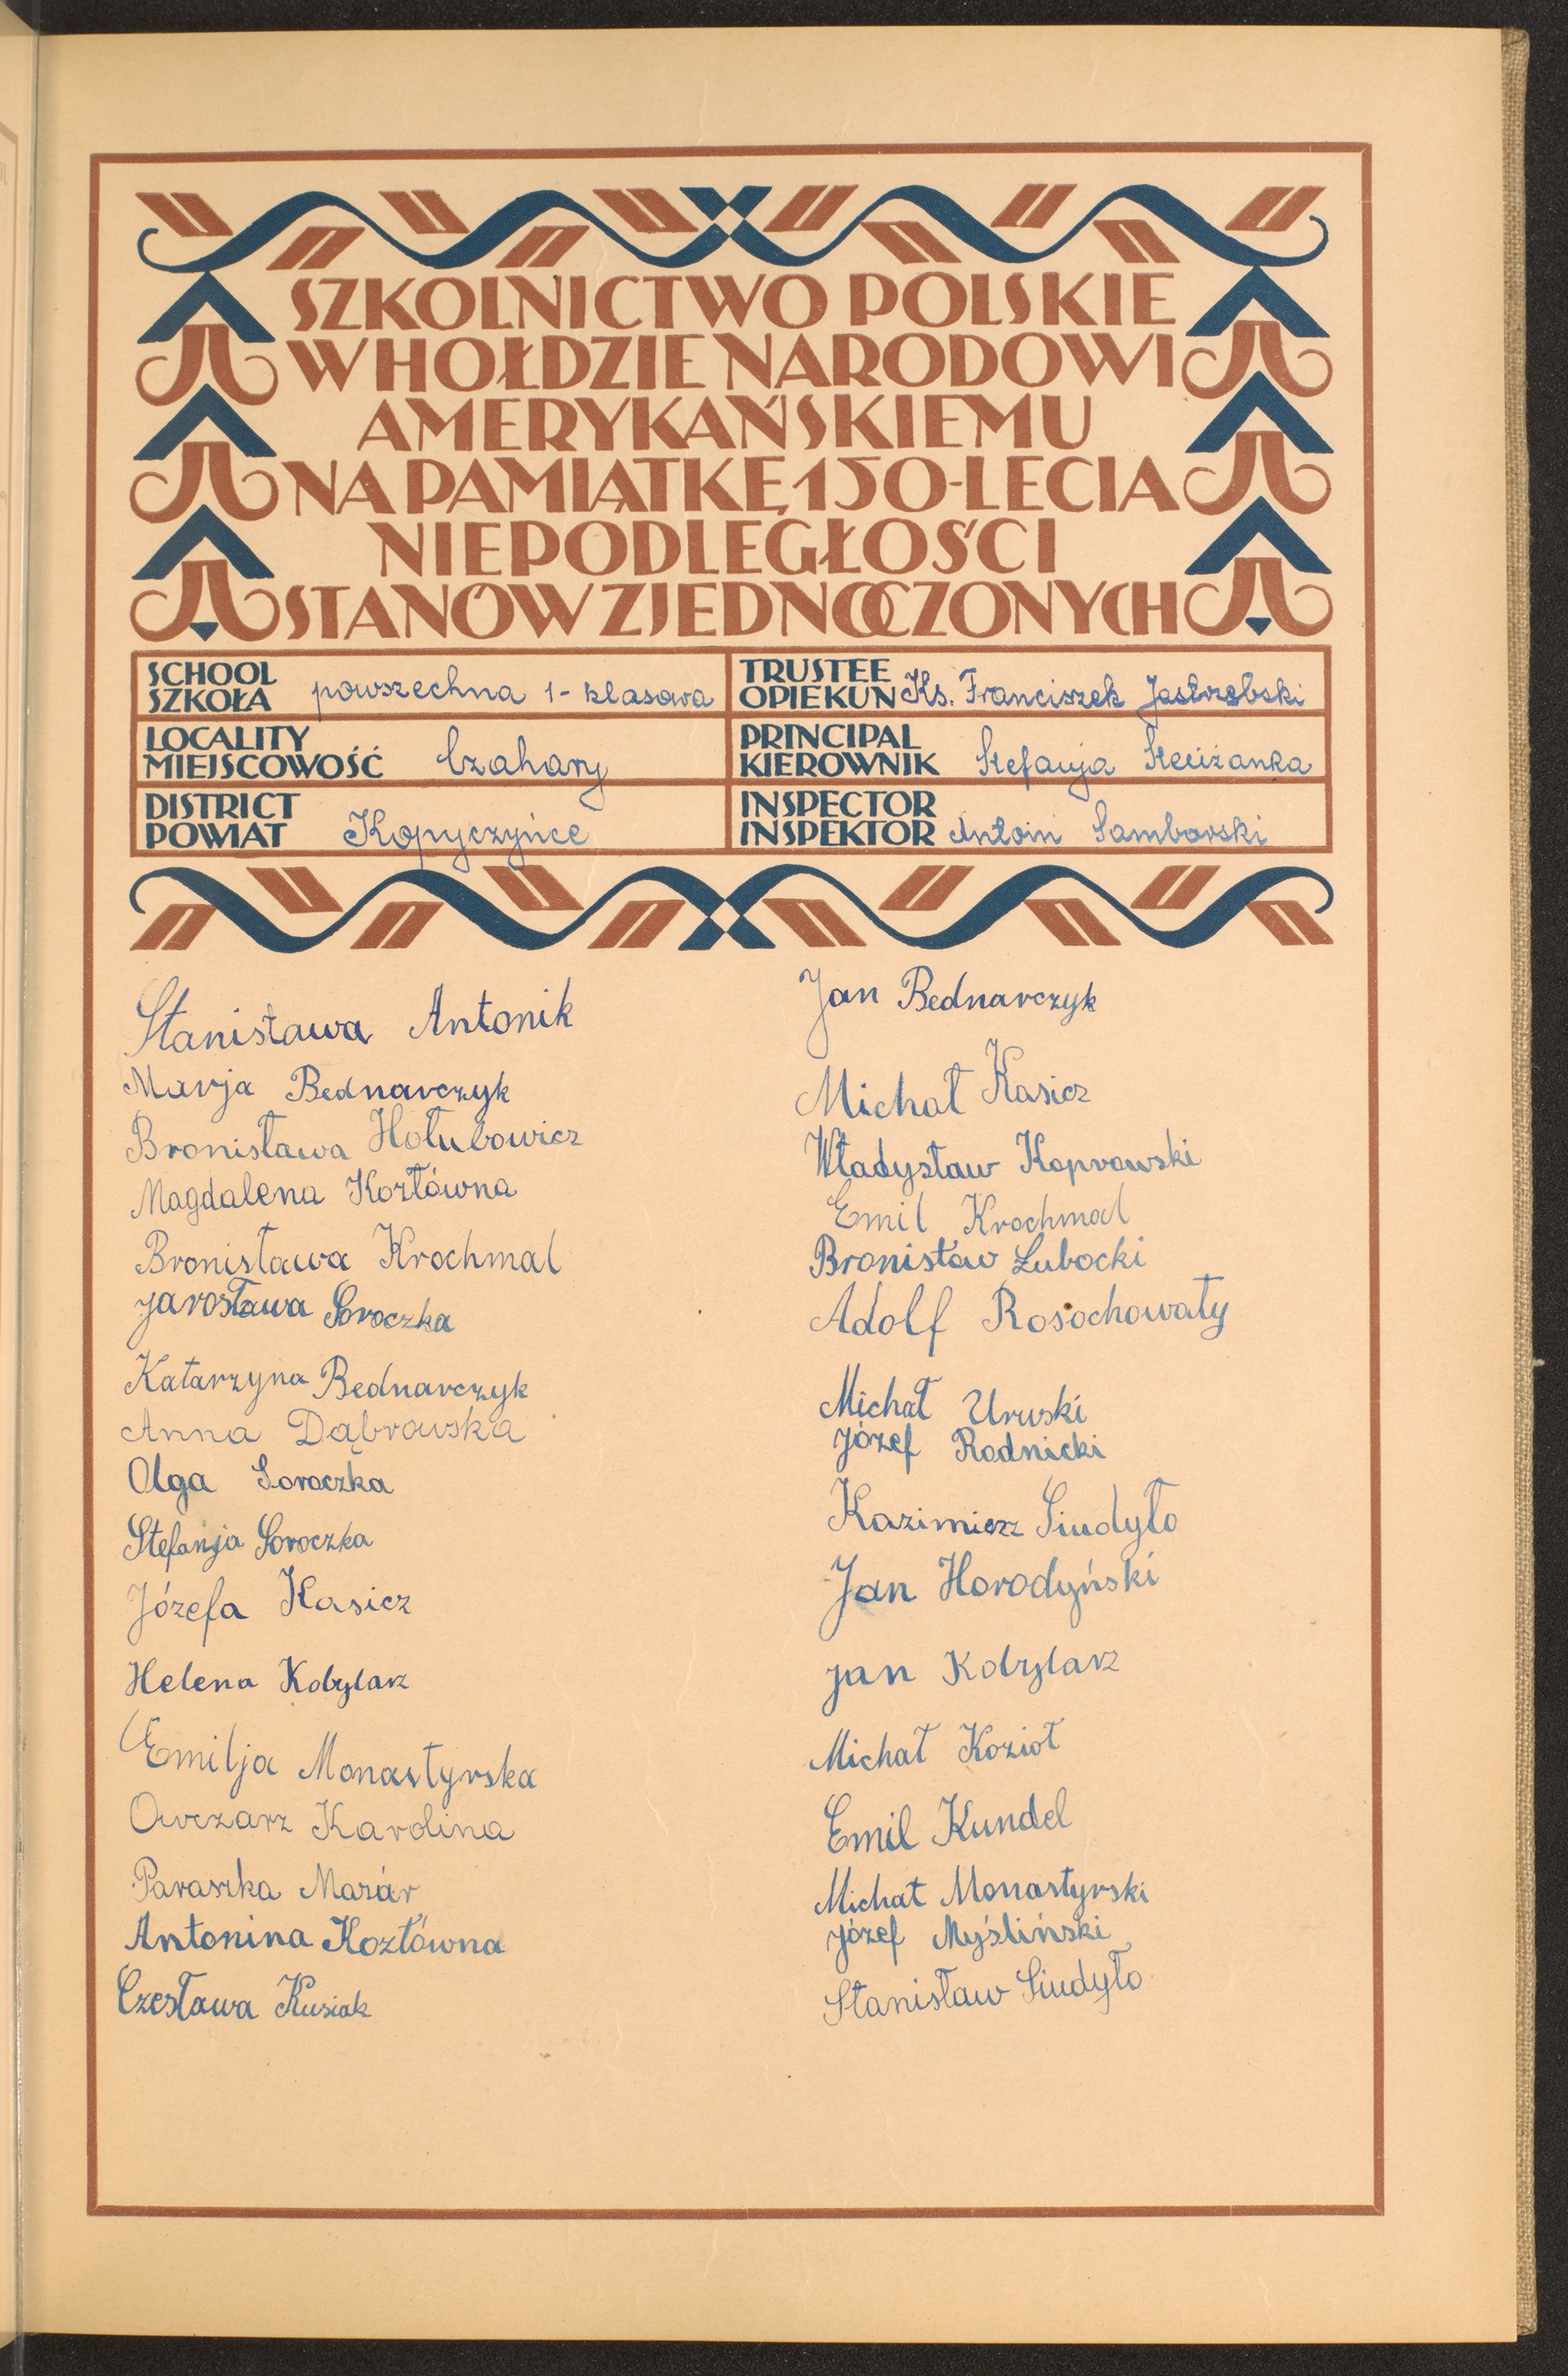 SZKOLNICTWO POLSKIE
W HOŁDZIE NARODOWI
AMERYKAŃSKIEMU
NA PAMIĄTKĘ 150-LECIA
NIEPODLEGŁOŚCI
STANÓW ZJEDNOCZONYCH
SCHOOL
SZKOŁA powszechna 1-klasowa
TRUSTEE
OPIEKUN Ks. Franciszek Jastrzębski
LOCALITY
MIEJSCOWOŚĆ Czahary
PRINCIPAL
KIEROWNIK Stefanja
DISTRICT
POWIAT Kopyczyńce
INSPECTOR
INSPEKTOR Antoin Samborski
Stanisława Antonik
Marja Bednarczyk
Bronisława Hołubowicz
Magdalena Kozłówna
Bronisława Krochmal
Jarosława Soroczka
Katarzyna Bednarczyk
Anna Dąbrowska
Olga Soroczka
Stefanja Soroczka
Józefa Kasicz
Helena Kobylarz
Emilja Monastyrska
Owczarz Karolina
Paraszka Mazár
Antonina Kozłówna
Czesława Kusiak
Jan Bednarczyk
Michał Kasicz
Władysław Koprowski
Emil Krochmal
Bronisław Łubocki
Adolf Rosochowały
Michał Uruski
Józef Rodnicki
Kazimierz Siudyło
Jan Horodyński
Jan Kobylarz
Michał Kozioł
Emil Kundel
Michał Monastyrski
Józef Myśliński
Stanisław Siudyło